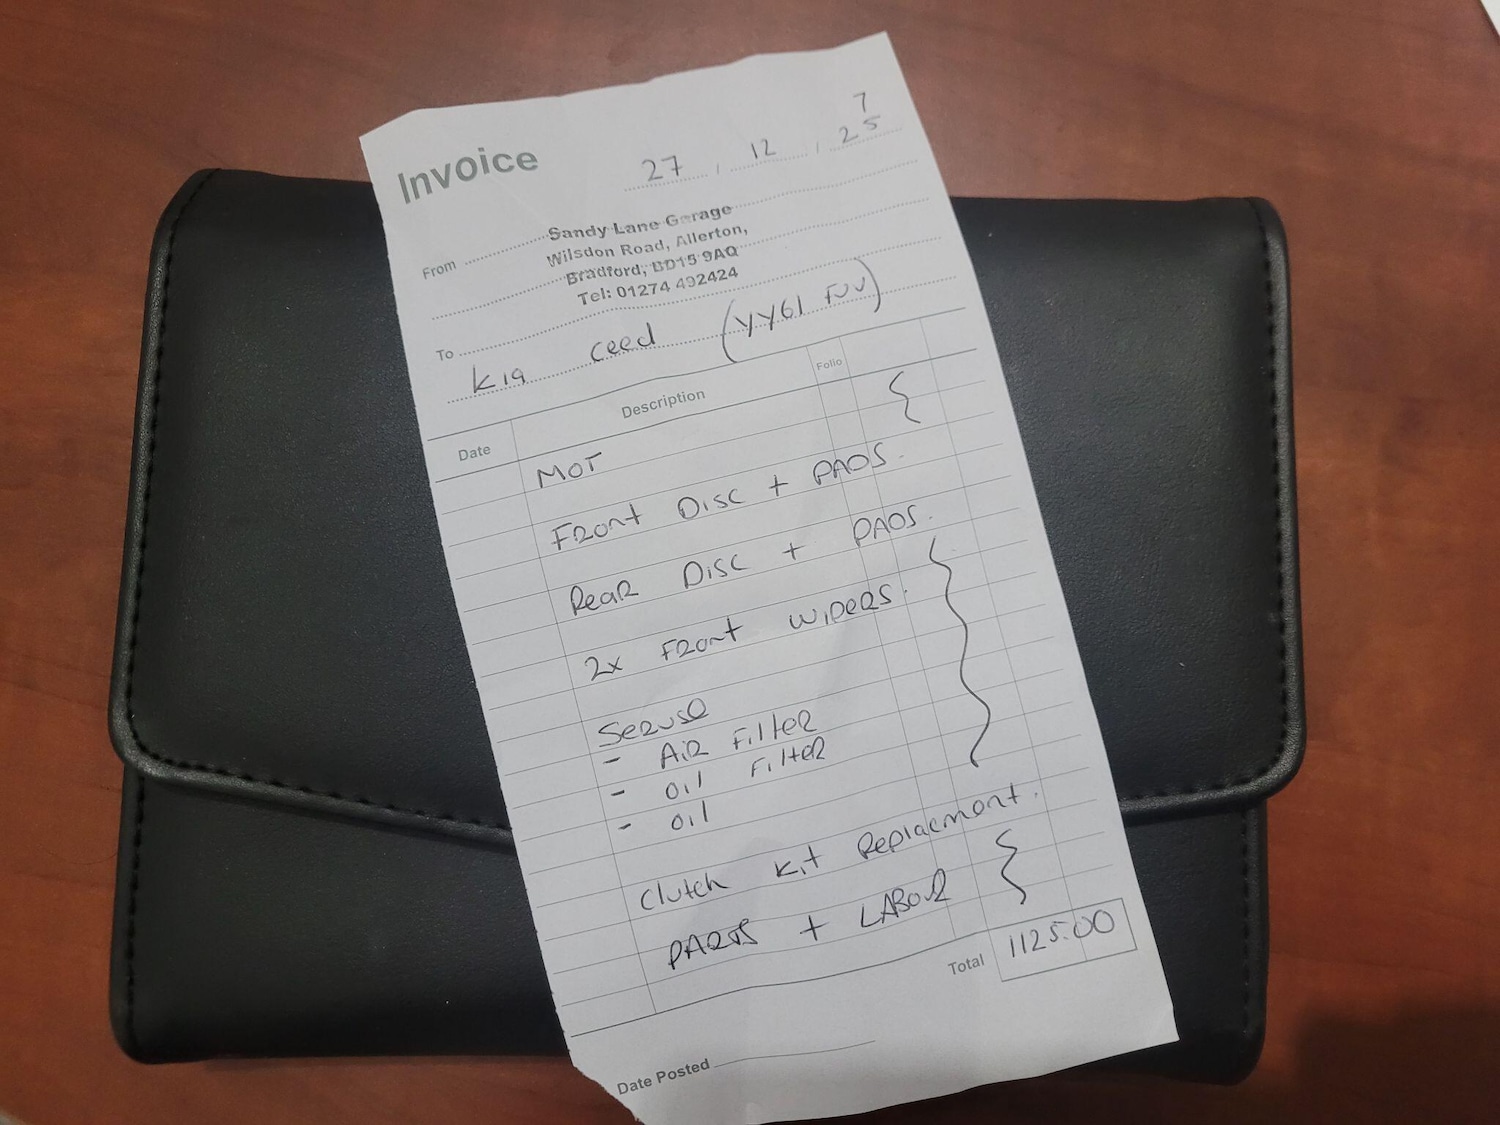 7
Invoice 27 / 12 / 25
From Sandy Lane Garage
Wilsdon Road, Allerton,
Bradford, BD15 9AQ
Tel: 01274 492424
To
Kia ceed (YY61 FUV)
Date Description Folio
MOT
Front Disc + PADS.
Rear Disc + PADS.
2x Front wipers.
Servise
- Air Filter
- Oil Filter
- Oil
Clutch kit Replacment.
PARTS + LABOUR
Total 1125.00
Date Posted